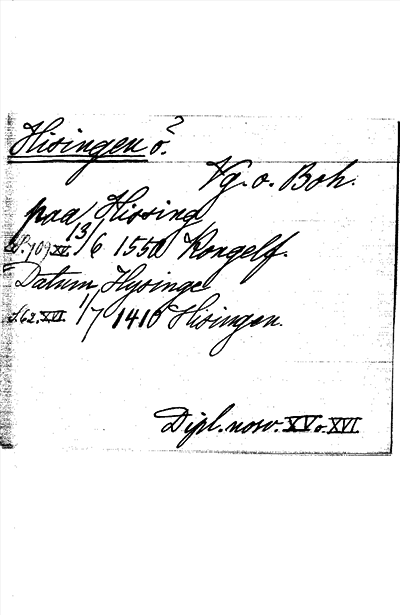 Hisingen ö.²
Vg. o. Boh.
paa Hissing
S. 709 XV. 13/6 1550 Kongelf.
Datum Hysinge
S. 62. XVI. 1/7 1410 Hisingen.
Dipl. norv. XV o. XVI.